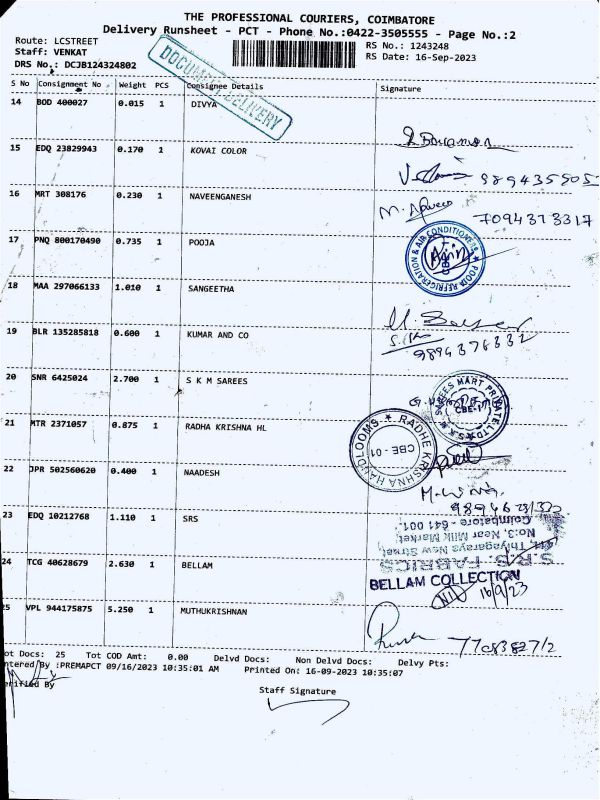 THE PROFESSIONAL COURIERS, COIMBATORE
Delivery Runsheet - PCT - Phone No.:0422-3505555 - Page No.:2
Route: LCSTREET
RS No.: 1243248
Staff: VENKAT
RS Date: 16-Sep-2023
DRS No.: DCJB124324802
DOCUMENT DELIVERY
S No Consignment No Weight PCS Consignee Details Signature
14 BOD 400027 0.015 1 DIVYA
15 EDQ 23829943 0.170 1 KOVAI COLOR
9894359057
16 MRT 308176 0.230 1 NAVEENGANESH
M. Naveen 7094373317
17 PNQ 800170490 0.735 1 POOJA
POOJA REFRIGERATION & AIR CONDITIONERS
18 MAA 297066133 1.010 1 SANGEETHA
19 BLR 135285818 0.600 1 KUMAR AND CO
9894376332
20 SNR 6425024 2.700 1 S K M SAREES
SAREES MART PRIVATE LTD CBE-1
21 MTR 2371057 0.875 1 RADHA KRISHNA HL
RADHE KRISHNA HANDLOOMS CBE - 01
22 JPR 502560620 0.400 1 NAADESH
23 EDQ 10212768 1.110 1 SRS
S.R.S. FABRICS
Thiyagaraya New Street,
No:3, Near Milk Market
Coimbatore - 641 001.
24 TCG 40628679 2.630 1 BELLAM
BELLAM COLLECTION
16/9/23
25 VPL 944175875 5.250 1 MUTHUKRISHNAN
ot Docs: 25 Tot COD Amt: 0.00 Delvd Docs: Non Delvd Docs: Delvy Pts:
ntered By :PREMAPCT 09/16/2023 10:35:01 AM Printed On: 16-09-2023 10:35:07
erified By
Staff Signature